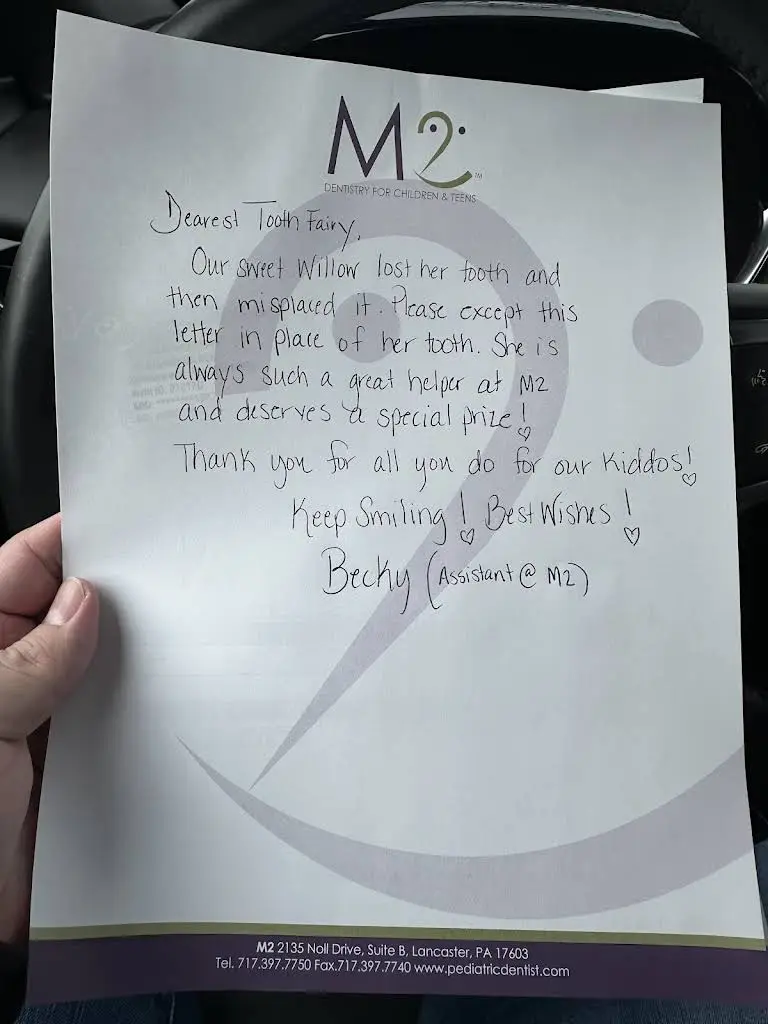 M2 ™
DENTISTRY FOR CHILDREN & TEENS
Dearest Tooth Fairy,
Our sweet Willow lost her tooth and
then misplaced it. Please except this
letter in place of her tooth. She is
always such a great helper at M2
and deserves a special prize!
Thank you for all you do for our Kiddos!
Keep Smiling! Best Wishes!
Becky (Assistant @ M2)
M2 2135 Noll Drive, Suite B, Lancaster, PA 17603
Tel. 717.397.7750 Fax.717.397.7740 www.pediatricdentist.com